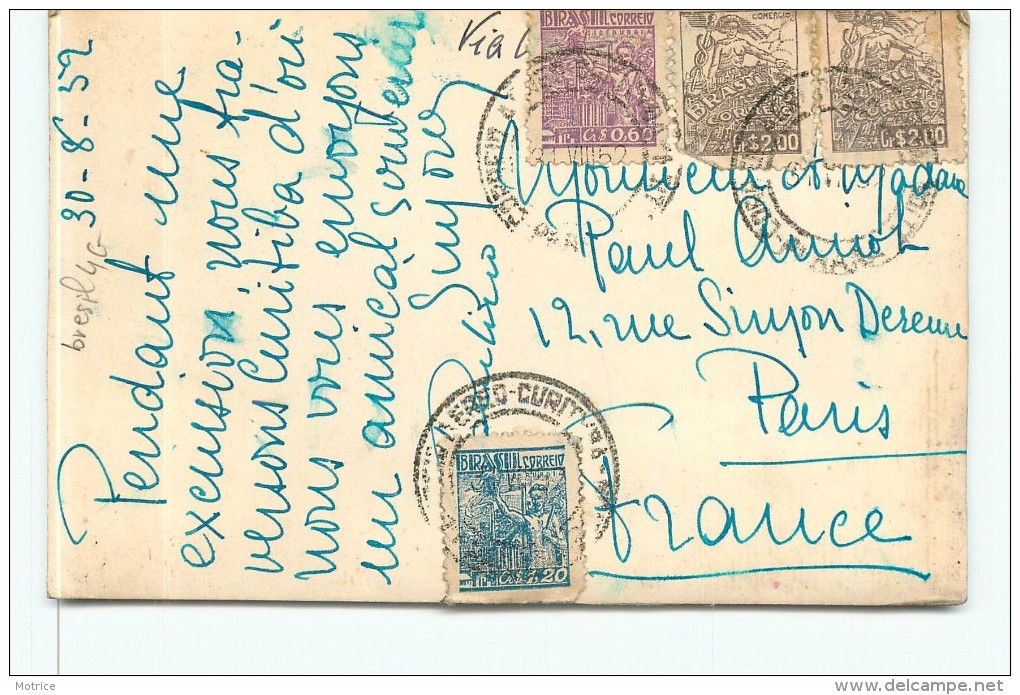 30-8-52
Pendant une
excursion nous tra-
versons Curitiba d'où
nous vous envoyons
un amical souvenir
bresil 46
Via
BRASIL CORREIO
SIDERURGIA
Cr$ 0,60
COMERCIO
BRASIL
CORREIO
Cr$ 2,00
BRASIL
CORREIO
Cr$ 2,00
VIII 52
Monsieur et Madame
Paul
12, rue Simyon Dereure
Paris
France
AEREO-CURITIBA
BRASIL CORREIO
20
Motrice
www.delcampe.net